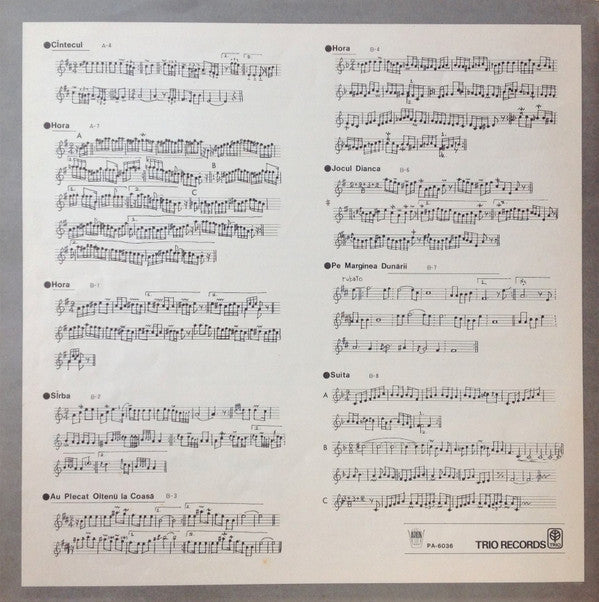 ●Cîntecul A-4
●Hora A-7
A
B
C
●Hora B-1
●Sîrba B-2
●Au Plecat Oltenii la Coasă B-3
●Hora B-4
●Jocul Dianca B-6
●Pe Marginea Dunării B-7
rubato
●Suita B-8
A
B
C
PA-6036 TRIO RECORDS TRIO